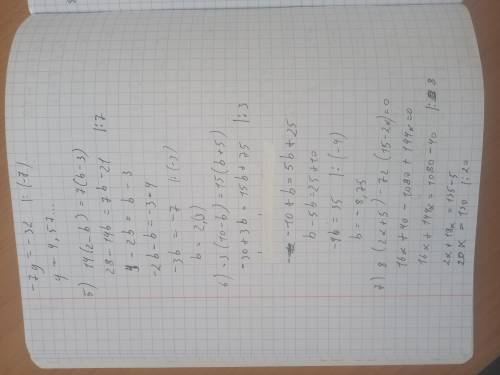 -7y = -32 |:(-7)
y = 4,57...
5) 14(2-b) = 7(b-3)
28 - 14b = 7b - 21 |:7
4 - 2b = b - 3
-2b - b = -3 + 4
-3b = -7 |:(-3)
b = 2,(3)
6) -3(10-b) = 15(b+5)
-30 + 3b = 15b + 75 |:3
-10 + b = 5b + 25
b - 5b = 25 + 10
-4b = 35 |:(-4)
b = -8,75
7) 8(2x+5) - 72(15-2x) = 0
16x + 40 - 1080 + 144x = 0
16x + 144x = 1080 - 40 |:8
2x + 18x = 135 - 5
20x = 130 |:20